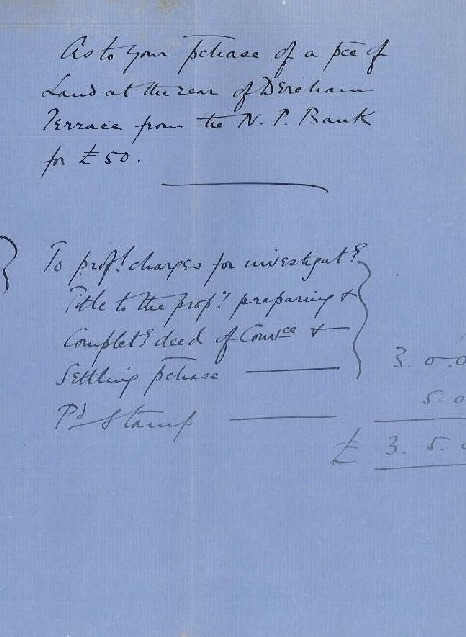 As to your pchase of a pce of
Land at the rear of Dereham
Terrace from the N. P. Bank
for £50.
To profl charges for investigatg
Title to the propy preparing &
Completg deed of Convce &
Settling pchase
3. 0. 0
Pd Stamp
5. 0
£ 3. 5.